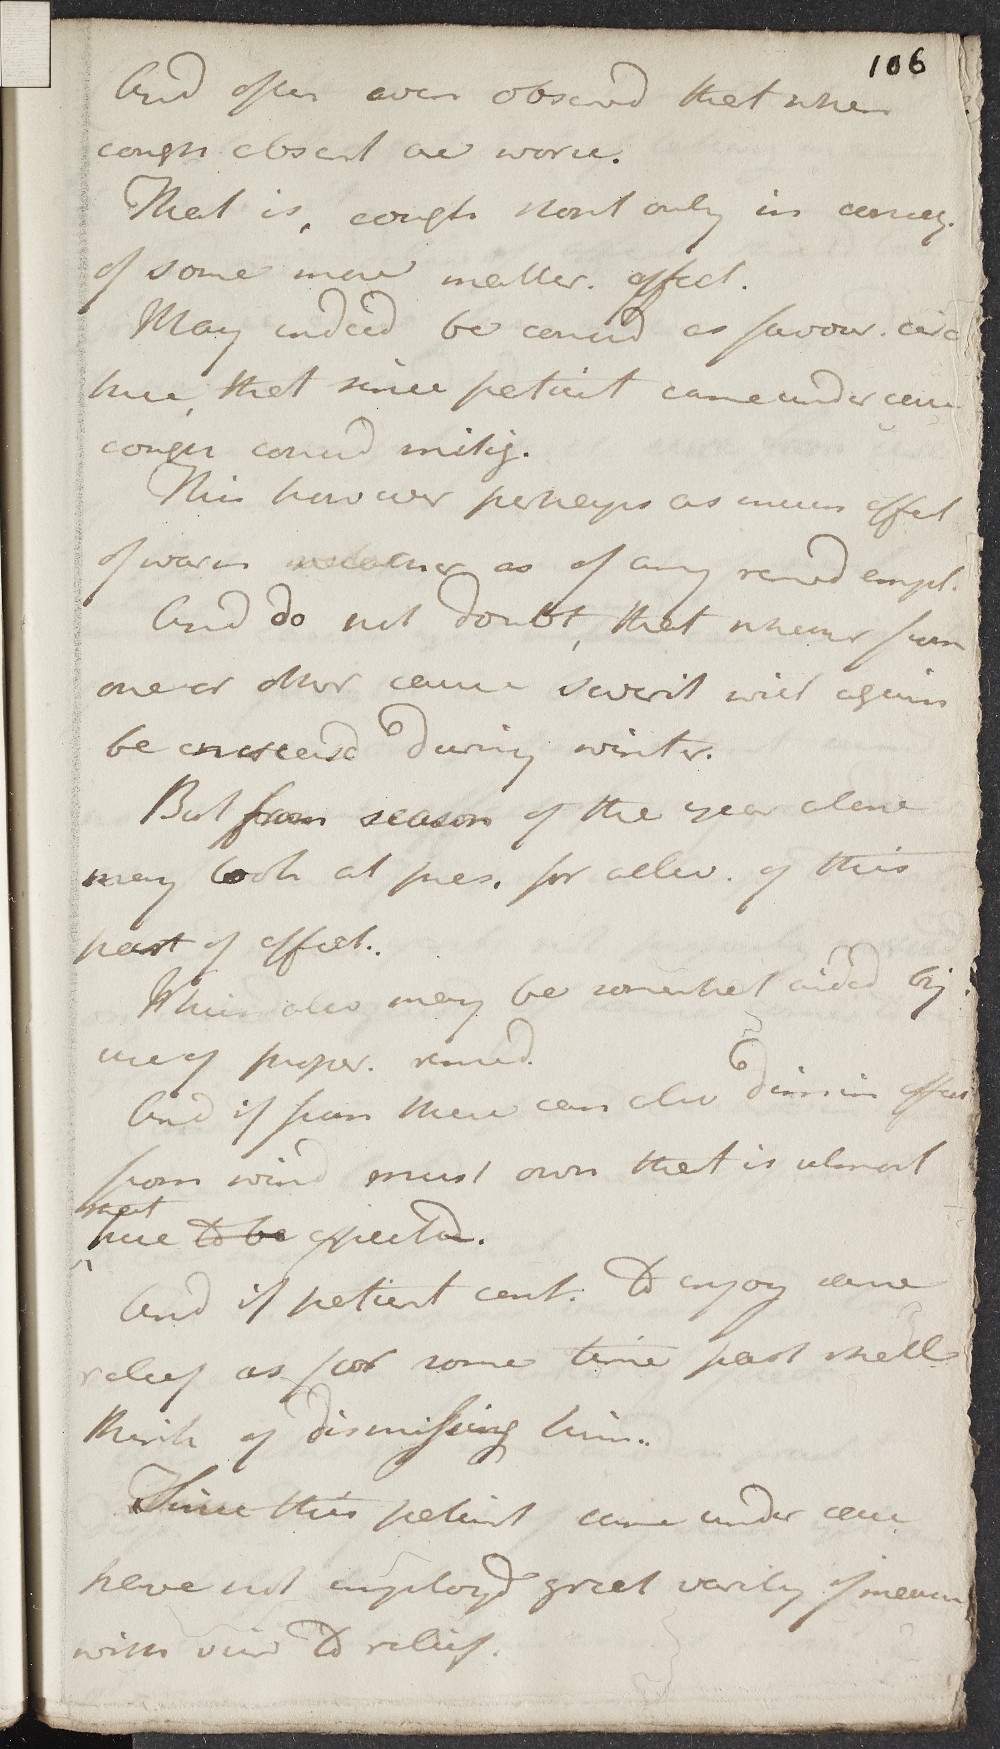 106
And often even observd that when
cough absent are worse.
That is, cough not only in conseq.
of some more matter. affect.
May indeed be considd as favour. circ
that since patient came under care
cough considd mitig.
This however perhaps as much effect
of warm weather as of any remed empl.
And do not doubt, that when from
one or other cause severit will again
be encreasd during winter.
But from season of the year alone
may look at pres. for allev. of this
part of affect.
Which also may be somewhat aided by
use of proper. remed.
And if from these can also dimin affect
from wind must own that is almost
that
here to be expected.
And if patient cont. to enjoy same
relief as for some time past shall
think of dismissing him.
Since this patient came under care
have not employd great variety of means
with view to relief.